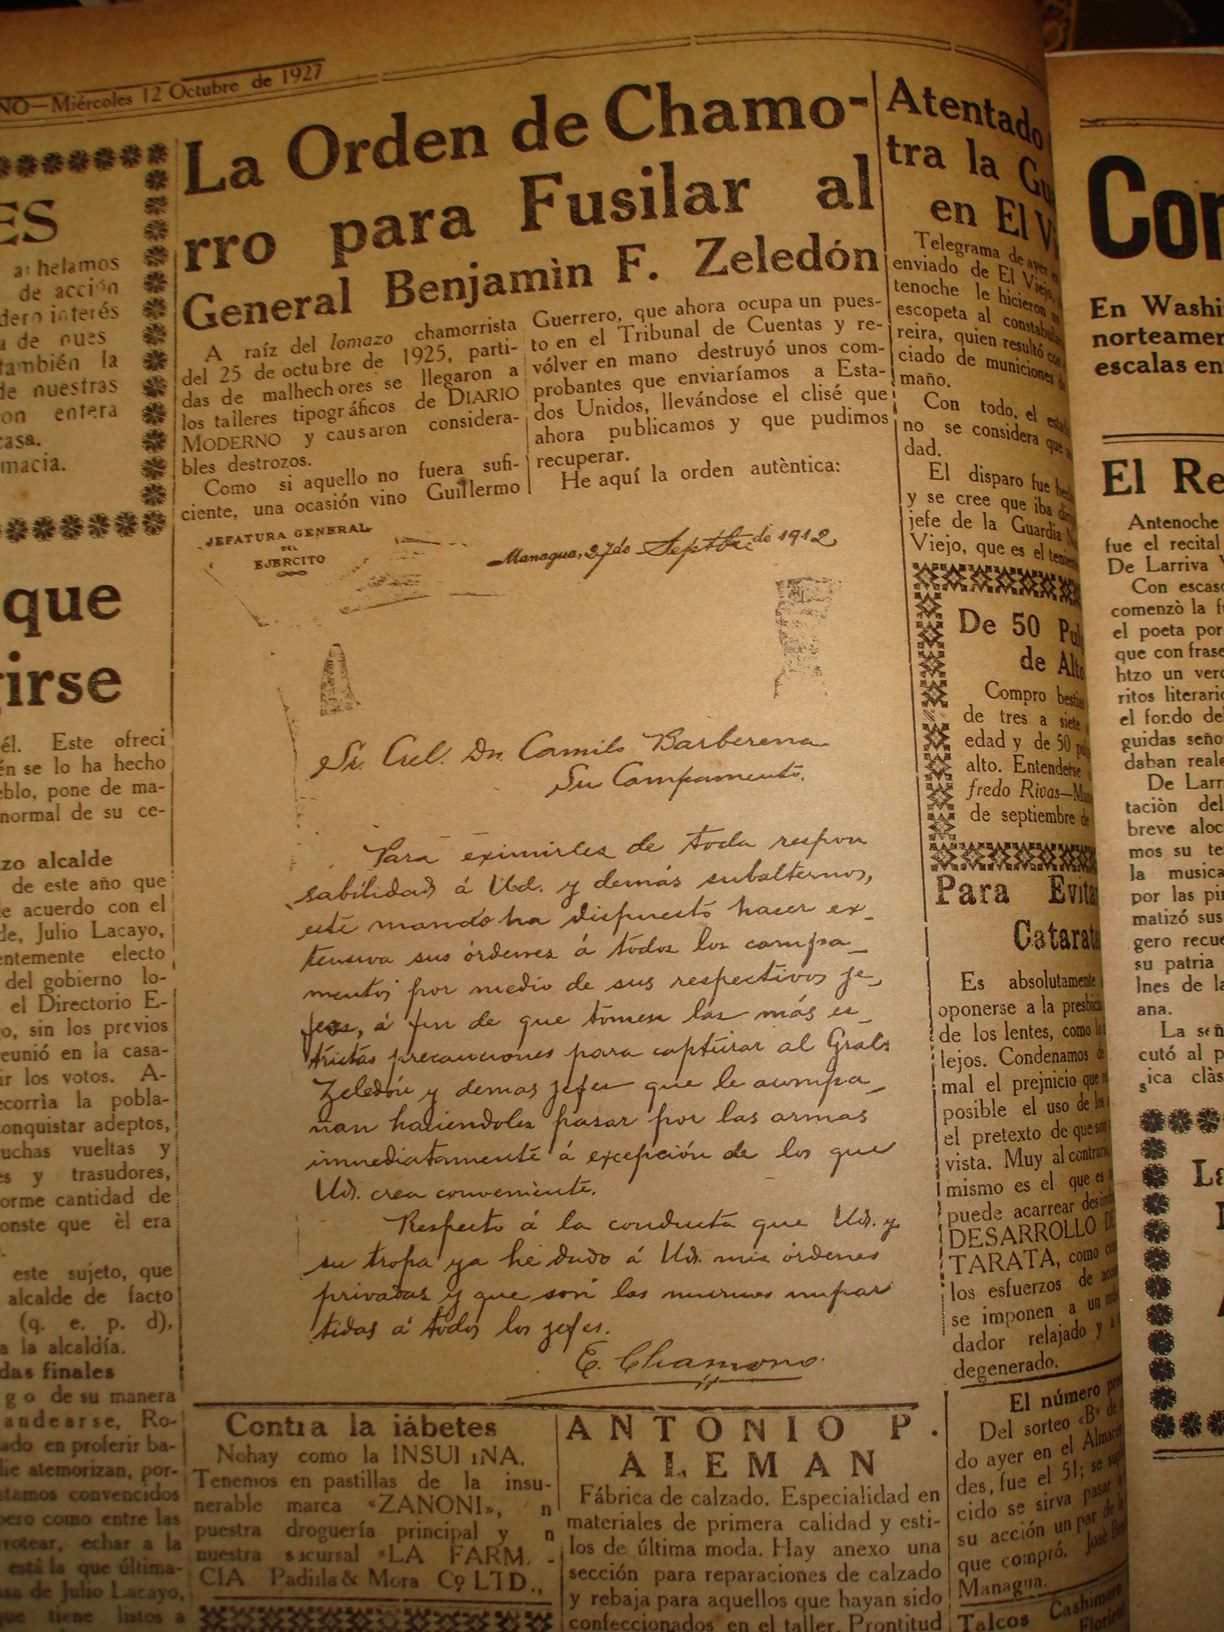 NO—Miércoles 12 Octubre de 1927
ES
anhelamos
de acción
dero interés
a de nues
también la
de nuestras
on entera
casa.
macia.
que
girse
él. Este ofreci
én se lo ha hecho
eblo, pone de ma-
normal de su ce-
zo alcalde
de este año que
e acuerdo con el
de, Julio Lacayo,
entemente electo
del gobierno lo-
el Directorio E-
o, sin los previos
reunió en la casa-
ir los votos. A-
ecorrìa la pobla-
conquistar adeptos,
uchas vueltas y
es y trasudores,
orme cantidad de
onste que èl era
este sujeto, que
alcalde de facto
(q. e. p. d),
a la alcaldía.
das finales
g o de su manera
andearse, Ro-
ado en proferir ba-
lie atemorizan, por-
stamos convencidos
pero como entre las
rotear, echar a la
está la que última-
asa de Julio Lacayo,
que tiene listos a
La Orden de Chamo-
rro para Fusilar al
General Benjamìn F. Zeledón
A raíz del lomazo chamorrista
del 25 de octubre de 1925, parti-
das de malhechores se llegaron a
los talleres tipográficos de DIARIO
MODERNO y causaron considera-
bles destrozos.
Como si aquello no fuera sufi-
ciente, una ocasión vino Guillermo
Guerrero, que ahora ocupa un pues-
to en el Tribunal de Cuentas y re-
vólver en mano destruyó unos com-
probantes que enviaríamos a Esta-
dos Unidos, llevándose el clisé que
ahora publicamos y que pudimos
recuperar.
He aquí la orden autèntica:
JEFATURA GENERAL
DEL
EJERCITO
Managua, 27 de Septbre de 1912
Sr. Crel. Dn. Camilo Barberena
Su Campamento.
Para eximirles de toda respon
sabilidad á Ud. y demás subalternos,
este mando ha dispuesto hacer ex-
tensiva sus órdenes á todos los campa-
mentos por medio de sus respectivos je-
fes, á fin de que tomen las más es-
trictas precauciones para capturar al Gral
Zeledón y demas jefes que le acompa-
ñan haciendoles pasar por las armas
inmediatamente á excepción de los que
Ud. crea conveniente.
Respecto á la conducta que Ud. y
su tropa ya he dado á Ud. mis órdenes
privadas y que són las mismas impar
tidas á todos los jefes.
E. Chamorro.
Contra la iábetes
Nohay como la INSULINA.
Tenemos en pastillas de la insu-
nerable marca «ZANONI», n
puestra droguería principal y n
nuestra sucursal «LA FARM. -
CIA Padilla & Mora Co LTD.,
ANTONIO P.
ALEMAN
Fábrica de calzado. Especialidad en
materiales de primera calidad y esti-
los de última moda. Hay anexo una
sección para reparaciones de calzado
y rebaja para aquellos que hayan sido
confeccionados en el taller. Prontitud
Atentado
tra la Gu
en El Vi
Telegrama de ayer
enviado de El Viejo,
tenoche le hicieron un
escopeta al constabulario
reira, quien resultó con
ciado de municiones
maño.
Con todo, el estado
no se considera que
dad.
El disparo fue hecho
y se cree que iba
jefe de la Guardia
Viejo, que es el
De 50 Pul
de Alto
Compro bestias
de tres a siete
edad y de 50 pulg
alto. Entenderse
fredo Rivas—Ma
de septiembre de
Para Evitar
Catarata
Es absolutamente
oponerse a la presbicia
de los lentes, como
lejos. Condenamos
mal el prejnicio que
posible el uso de los
el pretexto de que son
vista. Muy al contrario
mismo es el que es
puede acarrear
DESARROLLO DE
TARATA, como
los esfuerzos de
se imponen a un
dador relajado y
degenerado.
El número
Del sorteo «B» de
do ayer en el Almacén
des, fue el 51; se
cido se sirva pasar a
su acción un par de
que compró. José
Managua.
Talcos Cashimere
Con
En Washi
norteamer
escalas en
El Re
Antenoche
fue el recital
De Larriva
Con escaso
comenzò la f
el poeta por
que con frase
htzo un verd
ritos literario
el fondo del
guidas seño
daban reale
De Larr
tación del
breve aloc
mos su te
la musica
por las pi
matizó sus
gero recue
su patria
lnes de la
ana.
La señ
cutó al p
sica clàs
La